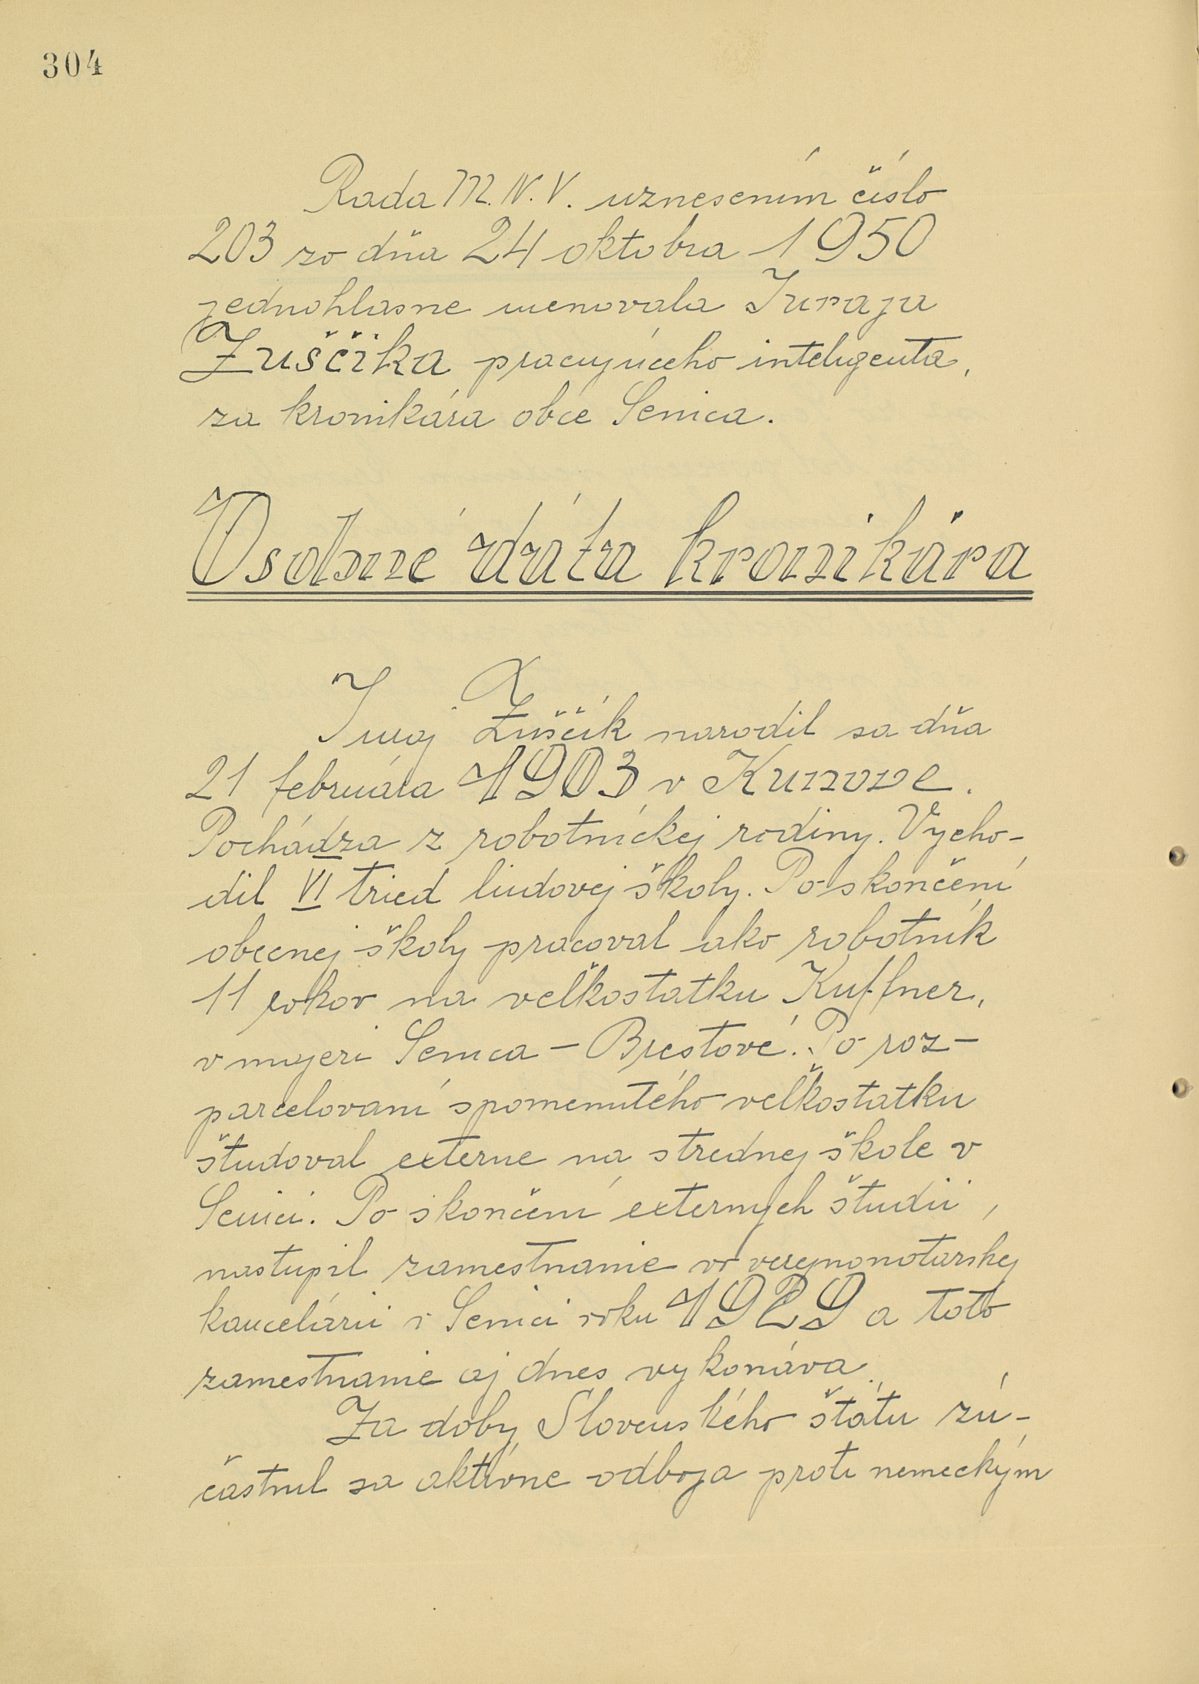 304
Rada M. N. V. uznesením číslo
203 zo dňa 24 oktobra 1950
jednohlasne menovala Juraja
Zuščíka pracujúceho inteligenta,
za kronikára obce Senica.
Osobné dáta kronikára
Juraj Zuščík narodil sa dňa
21 februára 1903 v Kunove.
Pochádza z robotníckej rodiny. Vycho-
dil VI tried ľudovej školy. Po skončení
obecnej školy pracoval ako robotník
11 rokov na veľkostatku Kuffner,
v majeri Senica - Brestové. Po roz-
parcelovaní spomenutého veľkostatku
študoval externe na strednej škole v
Senici. Po skončení externych študii,
nastupil zamestnanie vo verejnonotarskej
kancelárii v Senici roku 1929 a toto
zamestnanie aj dnes vykonáva.
Za doby Slovenského štátu zú-
častnil sa aktívne odboja proti nemeckým